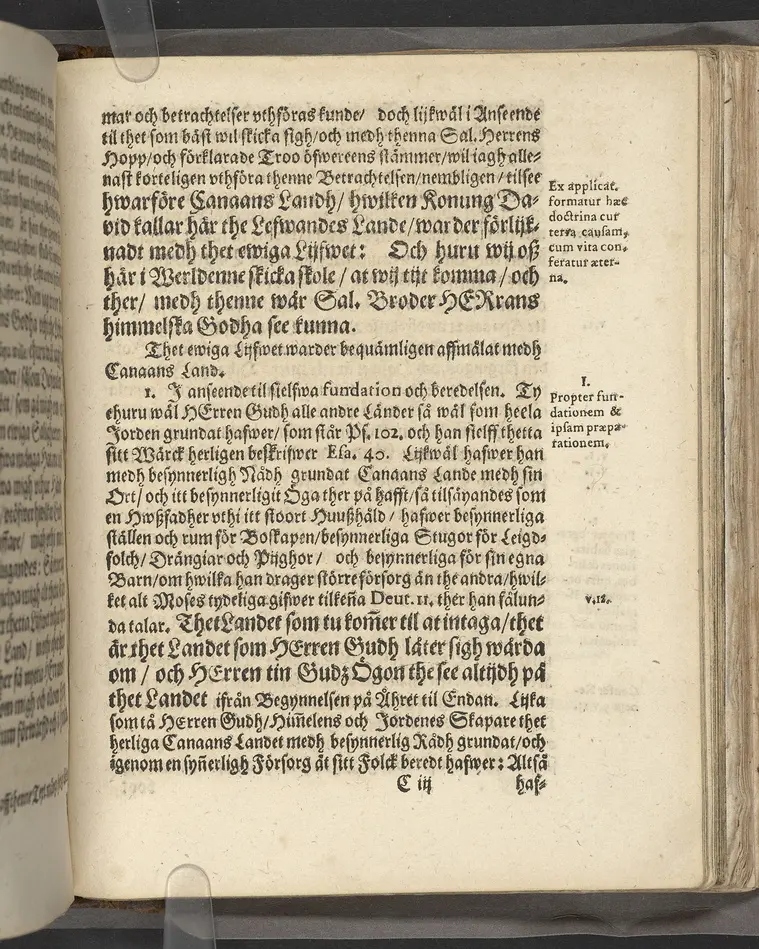 mar och betrachtelser vthföras kunde/ doch lijkwäl i Anseende
til thet som bäst wil skicka sigh/och medh thenna Sal. Herrens
Hopp/och förklarade Troo öfwereens stämmer/wil iagh alle-
nast korteligen vthföra thenne Betrachtelsen/nembligen/tilsee
hwarföre Canaans Landh/ hwilken Konung Da-
vid kallar här the Lefwandes Lande/warder förlijk-
nadt medh thet ewiga Lijfwet: Och huru wij oß
här i Werldenne skicka skole/ at wij tijt komma/ och
ther/ medh thenne wår Sal. Broder HERrans
himmelska Godha see kunna.
Ex applicat.
formatur hæc
doctrina cur
terra causam,
cum vita con-
feratur æter-
na.
Thet ewiga Lijfwet warder beqwämligen affmålat medh
Canaans Land.
1. I anseende til sielfwa fundation och beredelsen. Ty
ehuru wäl HErren Gudh alle andre Länder så wäl som heela
Jorden grundat hafwer/ som står Ps. 102. och han sielff thetta
sitt Wärck herligen beskrifwer Esa. 40. Lijkwäl hafwer han
medh besynnerligh Nådh grundat Canaans Lande medh sin
Ort/ och itt besynnerligit Öga ther på hafft/så tilsäyandes som
en Hwßfadher vthi itt stoort Huußhåld/ hafwer besynnerliga
ställen och rum för Boskapen/besynnerliga Stugor för Leigd-
folch/ Drängiar och Pijghor/ och besynnerliga för sin egna
Barn/om hwilka han drager större försorg än the andra/hwil-
ket alt Moses tydeliga gifwer tilkeña Deut. 11. ther han sålun-
da talar. Thet Landet som tu kom̃er til at intaga/thet
är thet Landet som HErren Gudh låter sigh wårda
om/ och HErren tin Gudz Ögon the see altijdh på
thet Landet ifrån Begynnelsen på Åhret til Endan. Lijka
som tå HErren Gudh/Him̃elens och Jordenes Skapare thet
herliga Canaans Landet medh besynnerlig Rådh grundat/och
igenom en syñerligh Försorg åt sitt Folck beredt hafwer: Altså
I.
Propter fun-
dationem &
ipsam præpa-
rationem.
v.12.
C iij haf-